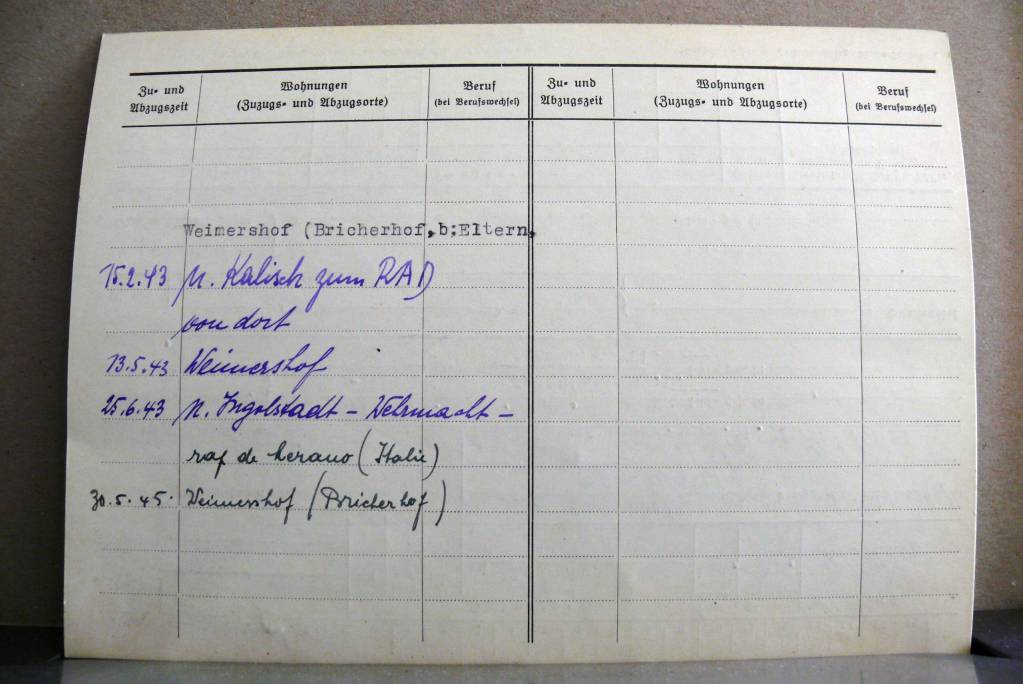 Zu- und Abzugszeit
Wohnungen
(Zuzugs- und Abzugsorte)
Beruf
(bei Berufswechsel)
Zu- und Abzugszeit
Wohnungen
(Zuzugs- und Abzugsorte)
Beruf
(bei Berufswechsel)
Weimershof (Bricherhof,b;Eltern,
15.2.43 n. Kalisch zum RAD
von dort
13.5.43 Weimershof
25.6.43 n. Ingolstadt - Wehrmacht -
rap de Merano (Italie)
30.5.45. Weimershof (Bricherhof)